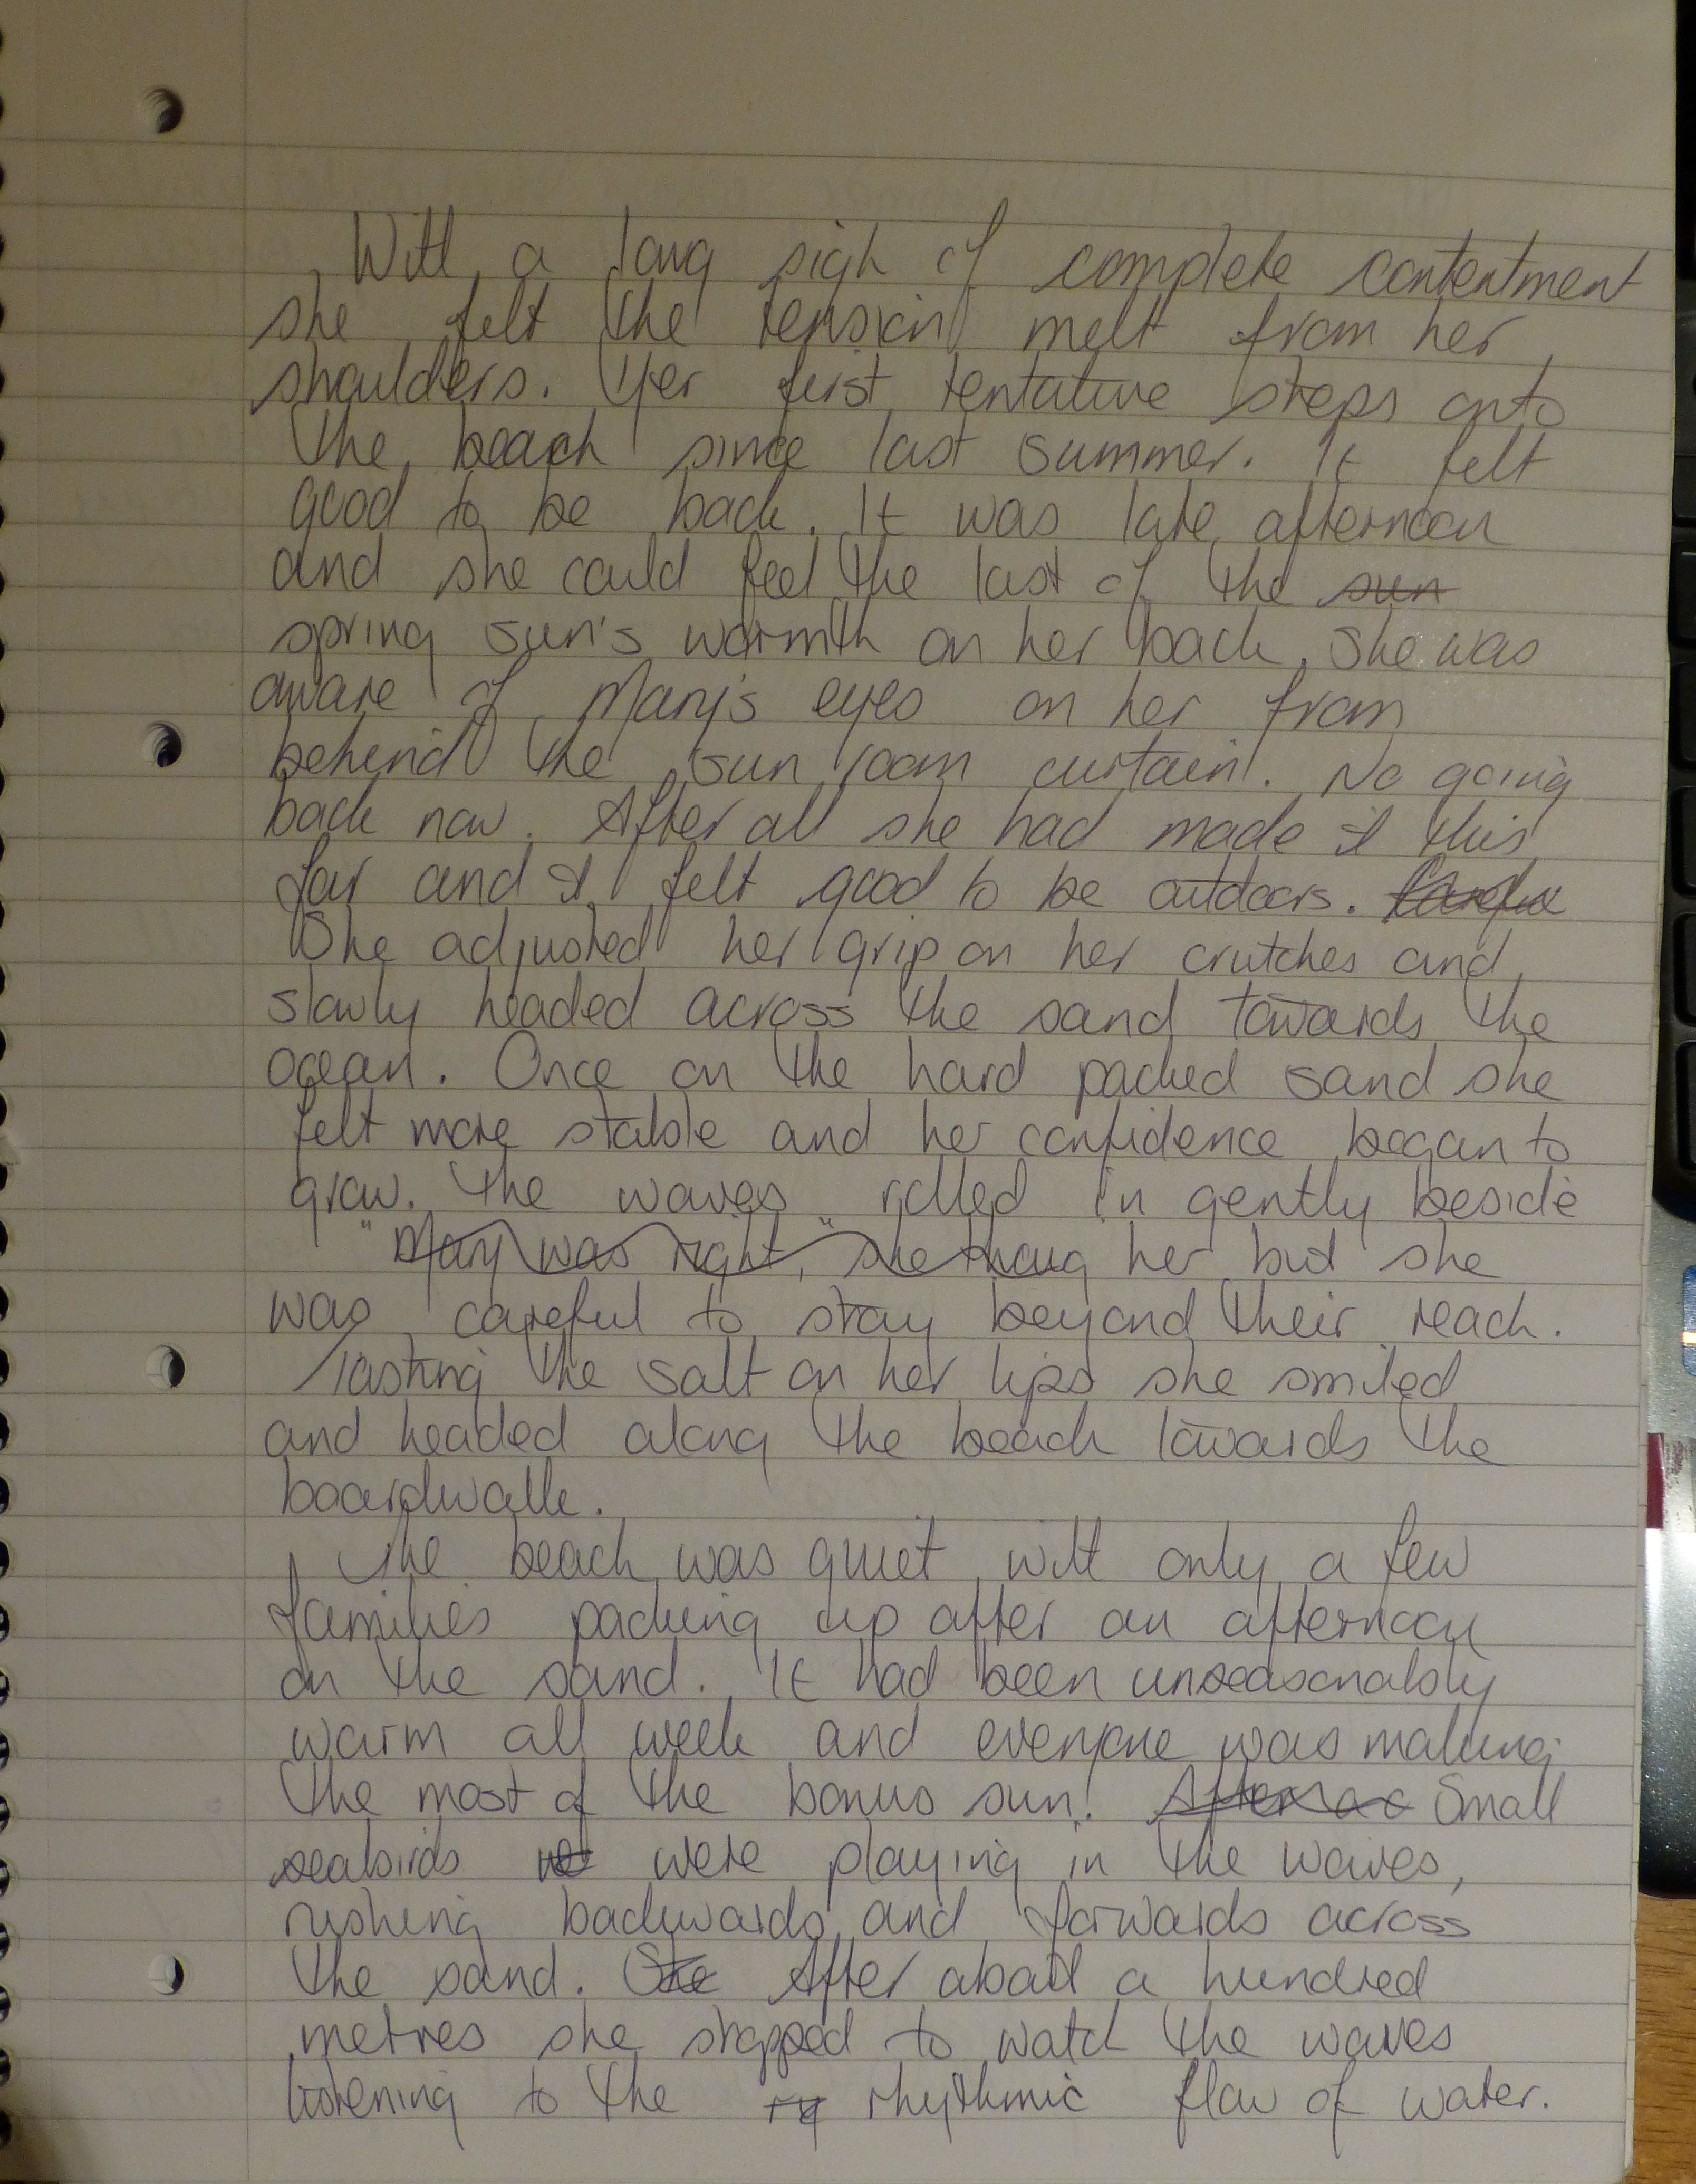 With a long sigh of complete contentment
she felt the tension melt from her
shoulders. Her first tentative steps onto
the beach since last summer. It felt
good to be back. It was late afternoon
and she could feel the last of the sun
spring sun's warmth on her back. She was
aware of Mary's eyes on her from
behind the sun room curtain. No going
back now. After all she had made it this
far and it felt good to be outdoors.
She adjusted her grip on her crutches and
slowly headed across the sand towards the
ocean. Once on the hard packed sand she
felt more stable and her confidence began to
grow. The waves rolled in gently beside
"Mary was right," she thoug her but she
was careful to stay beyond their reach.
Tasting the salt on her lips she smiled
and headed along the beach towards the
boardwalk.
The beach was quiet with only a few
families packing up after an afternoon
on the sand. It had been unseasonably
warm all week and everyone was making
the most of the bonus sun. Small
seabirds we were playing in the waves,
rushing backwards and forwards across
the sand. She After about a hundred
metres she stopped to watch the waves
listening to the ry rhythmic flow of water.